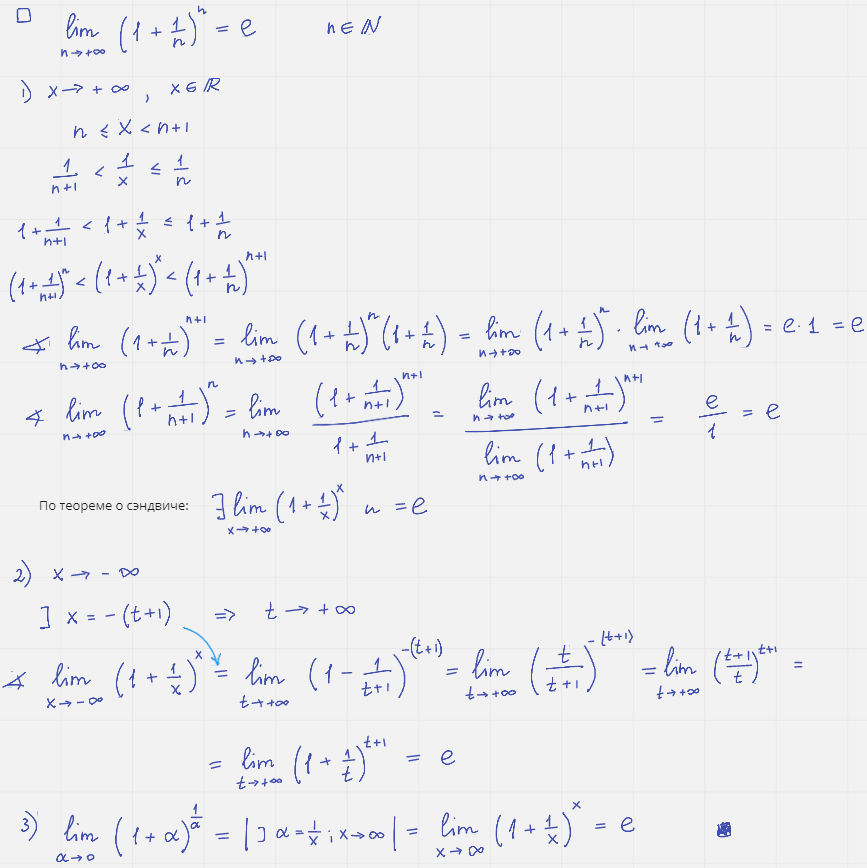 □ lim_{n→+∞} (1 + 1/n)^n = e   n ∈ ℕ
1) x → +∞ , x ∈ ℝ
n ≤ x < n+1
1/(n+1) < 1/x ≤ 1/n
1 + 1/(n+1) < 1 + 1/x ≤ 1 + 1/n
(1 + 1/(n+1))^n < (1 + 1/x)^x < (1 + 1/n)^{n+1}
∢ lim_{n→+∞} (1 + 1/n)^{n+1} = lim_{n→+∞} (1 + 1/n)^n (1 + 1/n) = lim_{n→+∞} (1 + 1/n)^n · lim_{n→+∞} (1 + 1/n) = e · 1 = e
∢ lim_{n→+∞} (1 + 1/(n+1))^n = lim_{n→+∞} (1 + 1/(n+1))^{n+1} / (1 + 1/(n+1)) = lim_{n→+∞} (1 + 1/(n+1))^{n+1} / lim_{n→+∞} (1 + 1/(n+1)) = e/1 = e
По теореме о сэндвиче: ∃ lim_{x→+∞} (1 + 1/x)^x и = e
2) x → -∞
] x = -(t+1) ⇒ t → +∞
∢ lim_{x→-∞} (1 + 1/x)^x = lim_{t→+∞} (1 - 1/(t+1))^{-(t+1)} = lim_{t→+∞} (t/(t+1))^{-(t+1)} = lim_{t→+∞} ((t+1)/t)^{t+1} =
= lim_{t→+∞} (1 + 1/t)^{t+1} = e
3) lim_{α→0} (1 + α)^{1/α} = | ] α = 1/x ; x → ∞ | = lim_{x→∞} (1 + 1/x)^x = e ■